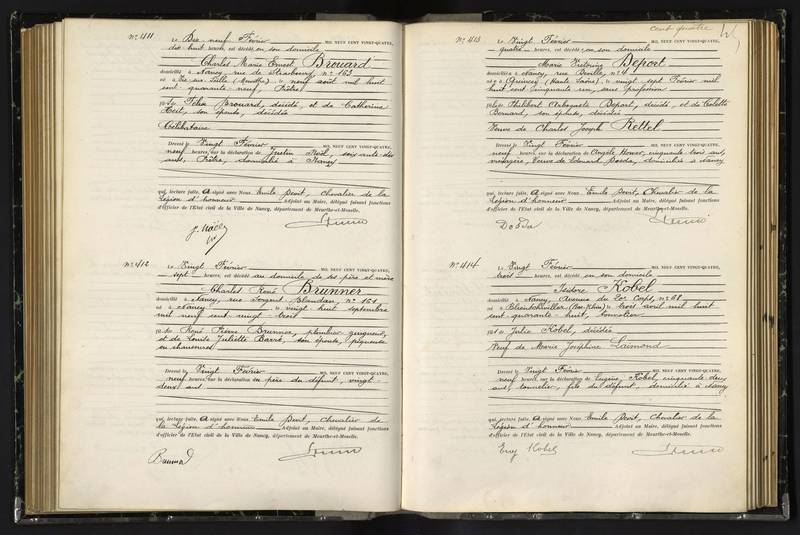 N° 411
Le Dix-neuf Février MIL NEUF CENT VINGT-QUATRE,
dix huit heures, est décédé en son domicile
Charles Marie Ernest Brouard
domicilié à Nancy, rue de Strasbourg, n° 163
né à (Meurthe) le neuf août mil huit
cent quarante-neuf, Prêtre
fils de Félix Brouard, décédé, et de Catherine
son épouse, décédée
Célibataire
Dressé le Vingt Février MIL NEUF CENT VINGT-QUATRE,
neuf heures, sur la déclaration de Justin Noël, soixante-dix
ans, Prêtre, domicilié à Nancy
qui, lecture faite, a signé avec Nous Emile Chevalier de la
Légion d'honneur Adjoint au Maire, délégué faisant fonctions
d'officier de l'Etat civil de la Ville de Nancy, département de Meurthe-et-Moselle.
J. Noël
N° 412
Le Vingt Février MIL NEUF CENT VINGT-QUATRE,
sept heures, est décédé au domicile de ses père et mère
Charles René Brunner
domicilié à Nancy, rue Sergent Blandan, n° 161
né à Nancy le vingt huit septembre
mil neuf cent vingt-trois
fils de René Pierre Brunner, plombier zingueur,
et de Louise Juliette Barré, son épouse, piqueuse
en chaussures
Dressé le Vingt Février MIL NEUF CENT VINGT-QUATRE,
neuf heures, sur la déclaration du père du défunt, vingt-
deux ans
qui, lecture faite, a signé avec Nous Emile Chevalier de
la Légion d'honneur Adjoint au Maire, délégué faisant fonctions
d'officier de l'Etat civil de la Ville de Nancy, département de Meurthe-et-Moselle.
cent quatre
N° 413
Le Vingt Février MIL NEUF CENT VINGT-QUATRE,
quatre heures, est décédée en son domicile
Marie Beport
domiciliée à Nancy, rue n° 4
née à Quincey (Haute Saône), le vingt-sept Février mil
huit cent cinquante un, sans profession
fille de Philibert Beport, décédé, et de Colette
Bernard, son épouse, décédée
Veuve de Charles Joseph Rettel
Dressé le Vingt Février MIL NEUF CENT VINGT-QUATRE,
neuf heures, sur la déclaration de Angèle cinquante trois ans,
ménagère, Veuve de Edouard domiciliée à Nancy
qui, lecture faite, a signé avec Nous Emile Chevalier de la
Légion d'honneur Adjoint au Maire, délégué faisant fonctions
d'officier de l'Etat civil de la Ville de Nancy, département de Meurthe-et-Moselle.
N° 414
Le Vingt Février MIL NEUF CENT VINGT-QUATRE,
trois heures, est décédé en son domicile
Isidore Kobel
domicilié à Nancy, Avenue du 20e Corps, n° 68
né à Blienschwiller (Bas-Rhin) le trois avril mil huit
cent quarante-huit, tonnelier
fils de Julie Kobel, décédée
Veuf de Marie Joséphine Laimond
Dressé le Vingt Février MIL NEUF CENT VINGT-QUATRE,
neuf heures, sur la déclaration de Eugène Kobel, cinquante deux
ans, tonnelier, fils du défunt, domicilié à Nancy
qui, lecture faite, a signé avec Nous Emile Chevalier de la
Légion d'honneur Adjoint au Maire, délégué faisant fonctions
d'officier de l'Etat civil de la Ville de Nancy, département de Meurthe-et-Moselle.
Eug Kobel